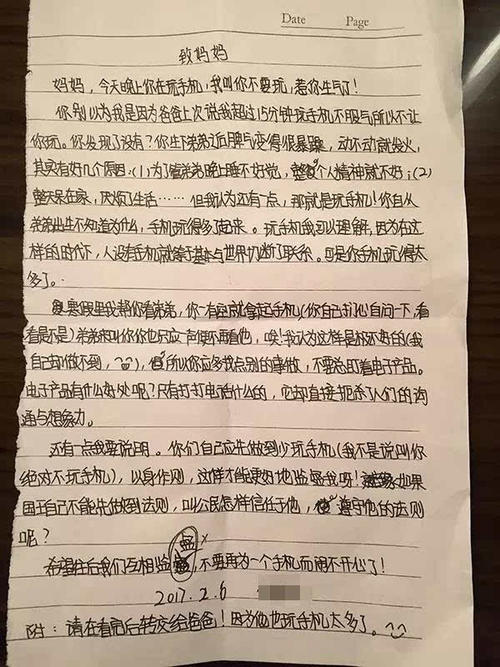 Date    Page
致妈妈
妈妈，今天晚上你在玩手机，我叫你不要玩，惹你生气了！
你别以为我是因为爸爸上次说我超过15分钟玩手机不服气所以不让
你玩。你发现了没有？你生下弟弟近后脾气变得很暴躁，动不动就发火，
其实有好几个原因：(1)为了管弟弟晚上睡不好觉，整个人精神就不好；(2)
整天呆在家，厌烦了生活……但我认为还有一点，那就是玩手机！你自从
弟弟出生不知道为什么，手机玩得多了起来。玩手机我可以理解，因为在这
样的时代下，人没有手机就等于基本与世界切断了联系。可是你手机玩得太
多了。
寒假里我帮你看弟弟，你一有空就拿起手机(你自己扪心自问一下，看
看是不是)弟弟和叫你你也只应一声便不再看他，唉！我认为这样是极不好的(我
自己却做不到，)，所以你应多找点别的事做，不要总盯着电子产品。
电子产品有什么好处呢？只有打打电话什么的，它却直接扼杀了人们的沟
通与想象力。
还有一点我要说明。你们自己应先做到少玩手机(我不是说叫你
绝对不玩手机)，以身作则，这样才能更好地监督我呀！如果
国王自己不能先做到法则，叫公民怎样信任他，遵守他的法则
呢？
希望往后我们互相监督，不要再为一个手机而闹不开心了！
2017.2.6
附：请在看完后转交给爸爸！因为他也玩手机太多了。